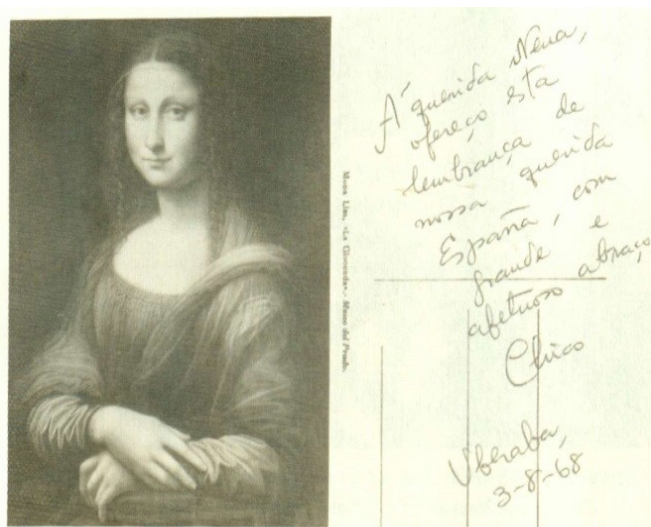 Mona Lisa, «La Gioconda».- Museo del Prado.
Á querida Nena,
ofereço esta
lembrança de
nossa querida
España, com
grande e
afetuoso abraço
Chico
Uberaba,
3-8-68